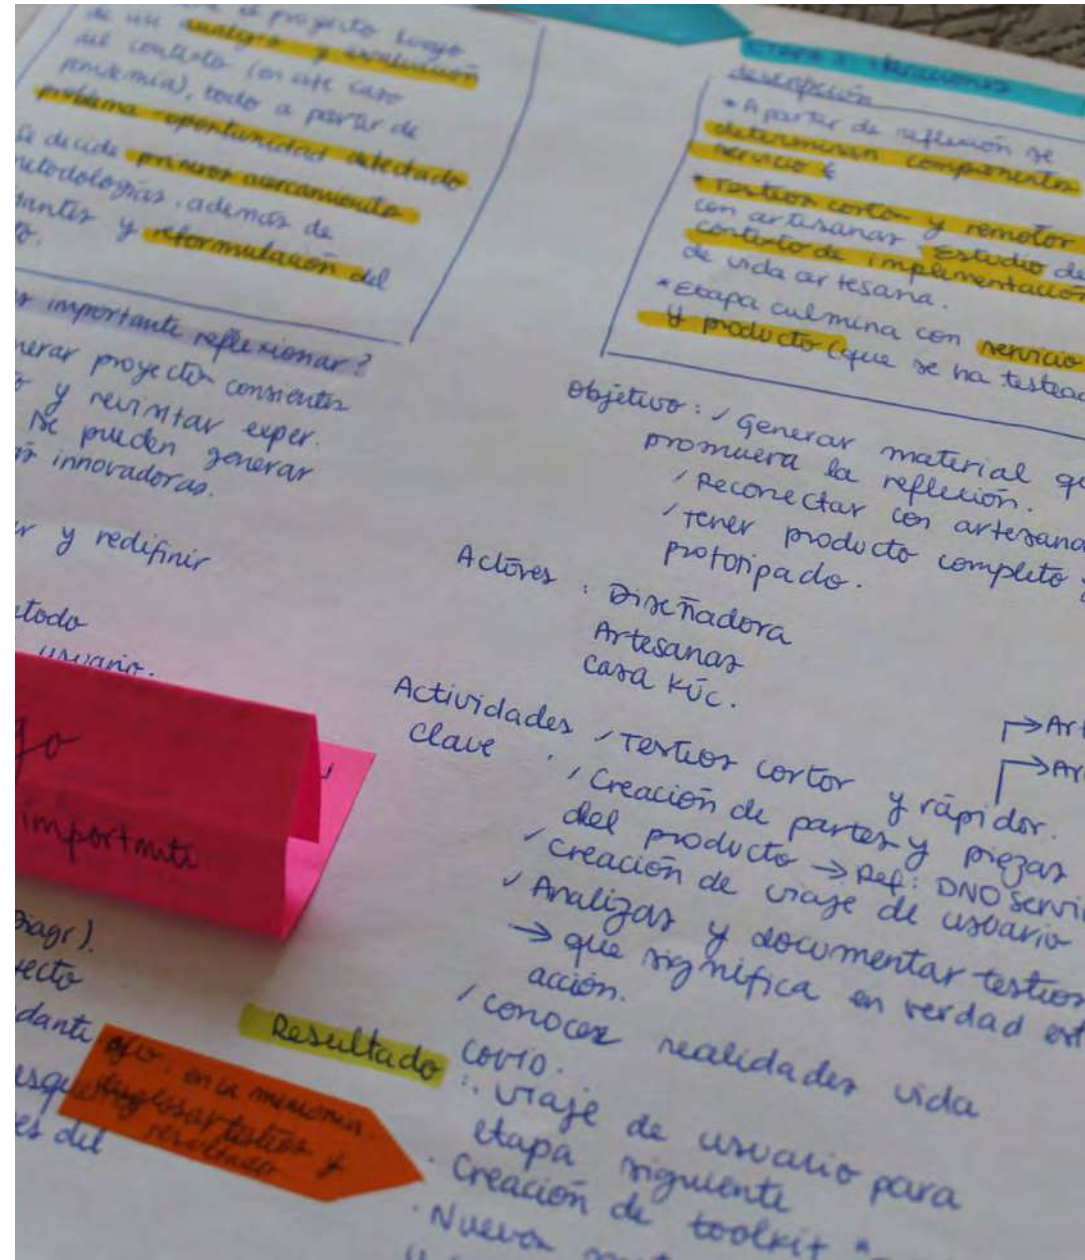 el proyecto luego
de un analisis y evaluación
del contexto (en este caso
pandemia), todo a partir de
problema oportunidad detectado
se decide primeros acercamiento
metodologías, además de
y reformulación del
importante reflexionar?
nerar proyectos conscientes
y revisitar exper.
se pueden generar
innovadoras.
y redifinir
etodo
usuario.
go
importante
Diagr).
yecto
dante
es del
ojo: en la memoria.
testeos y
resultado
Etapa 3: iteraciones
descripción
* A partir de reflexión se
determinan componentes
servicio &
* Testeos cortos y remotos
con artesanas. Estudio de
contexto de implementación
de vida artesana.
* Etapa culmina con servicio
y producto (que se ha testead
Objetivo: / Generar material qu
promueva la reflexión.
/ Reconectar con artesana
/ tener producto completo y
prototipado.
Actores : Diseñadora
Artesanas
Casa Kúc.
→ Art
→ Art
Actividades / Testeos cortos y rápidos.
Clave : / Creación de partes y piezas
del producto → Ref: DNO Servi
/ Creación de viaje de usuario
✓ Analizar y documentar testeos
→ que significa en verdad est
acción.
/ conocer realidades vida
covid.
Resultado : . Viaje de usuario para
etapa siguiente
. Creación de toolkit "
. Nuevos